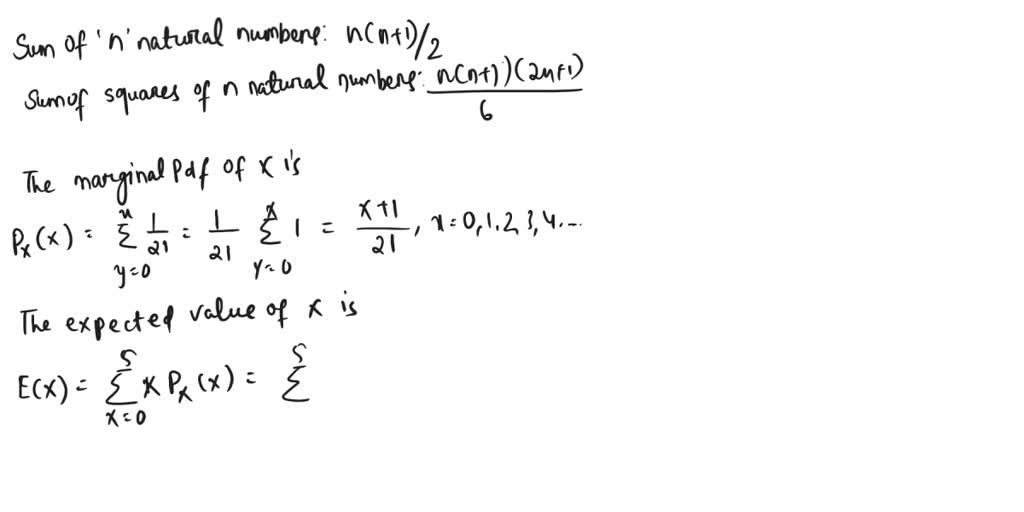 Sum of 'n' natural numbers: n(n+1)/2
Sum of squares of n natural numbers: n(n+1))(2n+1)/6
The marginal Pdf of X is
Pₓ(x) = Σ_{y=0}^{x} 1/21 = 1/21 Σ_{y=0}^{x} 1 = x+1/21, x=0,1,2,3,4...
The expected value of X is
E(x) = Σ_{x=0}^{5} x Pₓ(x) = Σ^{5}